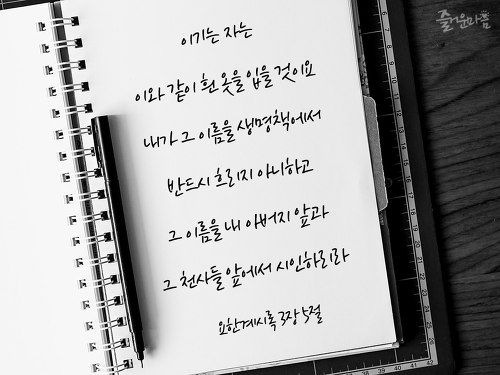 즐거운마음
이기는 자는
이와 같이 흰 옷을 입을 것이요
내가 그 이름을 생명책에서
반드시 흐리지 아니하고
그 이름을 내 아버지 앞과
그 천사들 앞에서 시인하리라
요한계시록 3장 5절